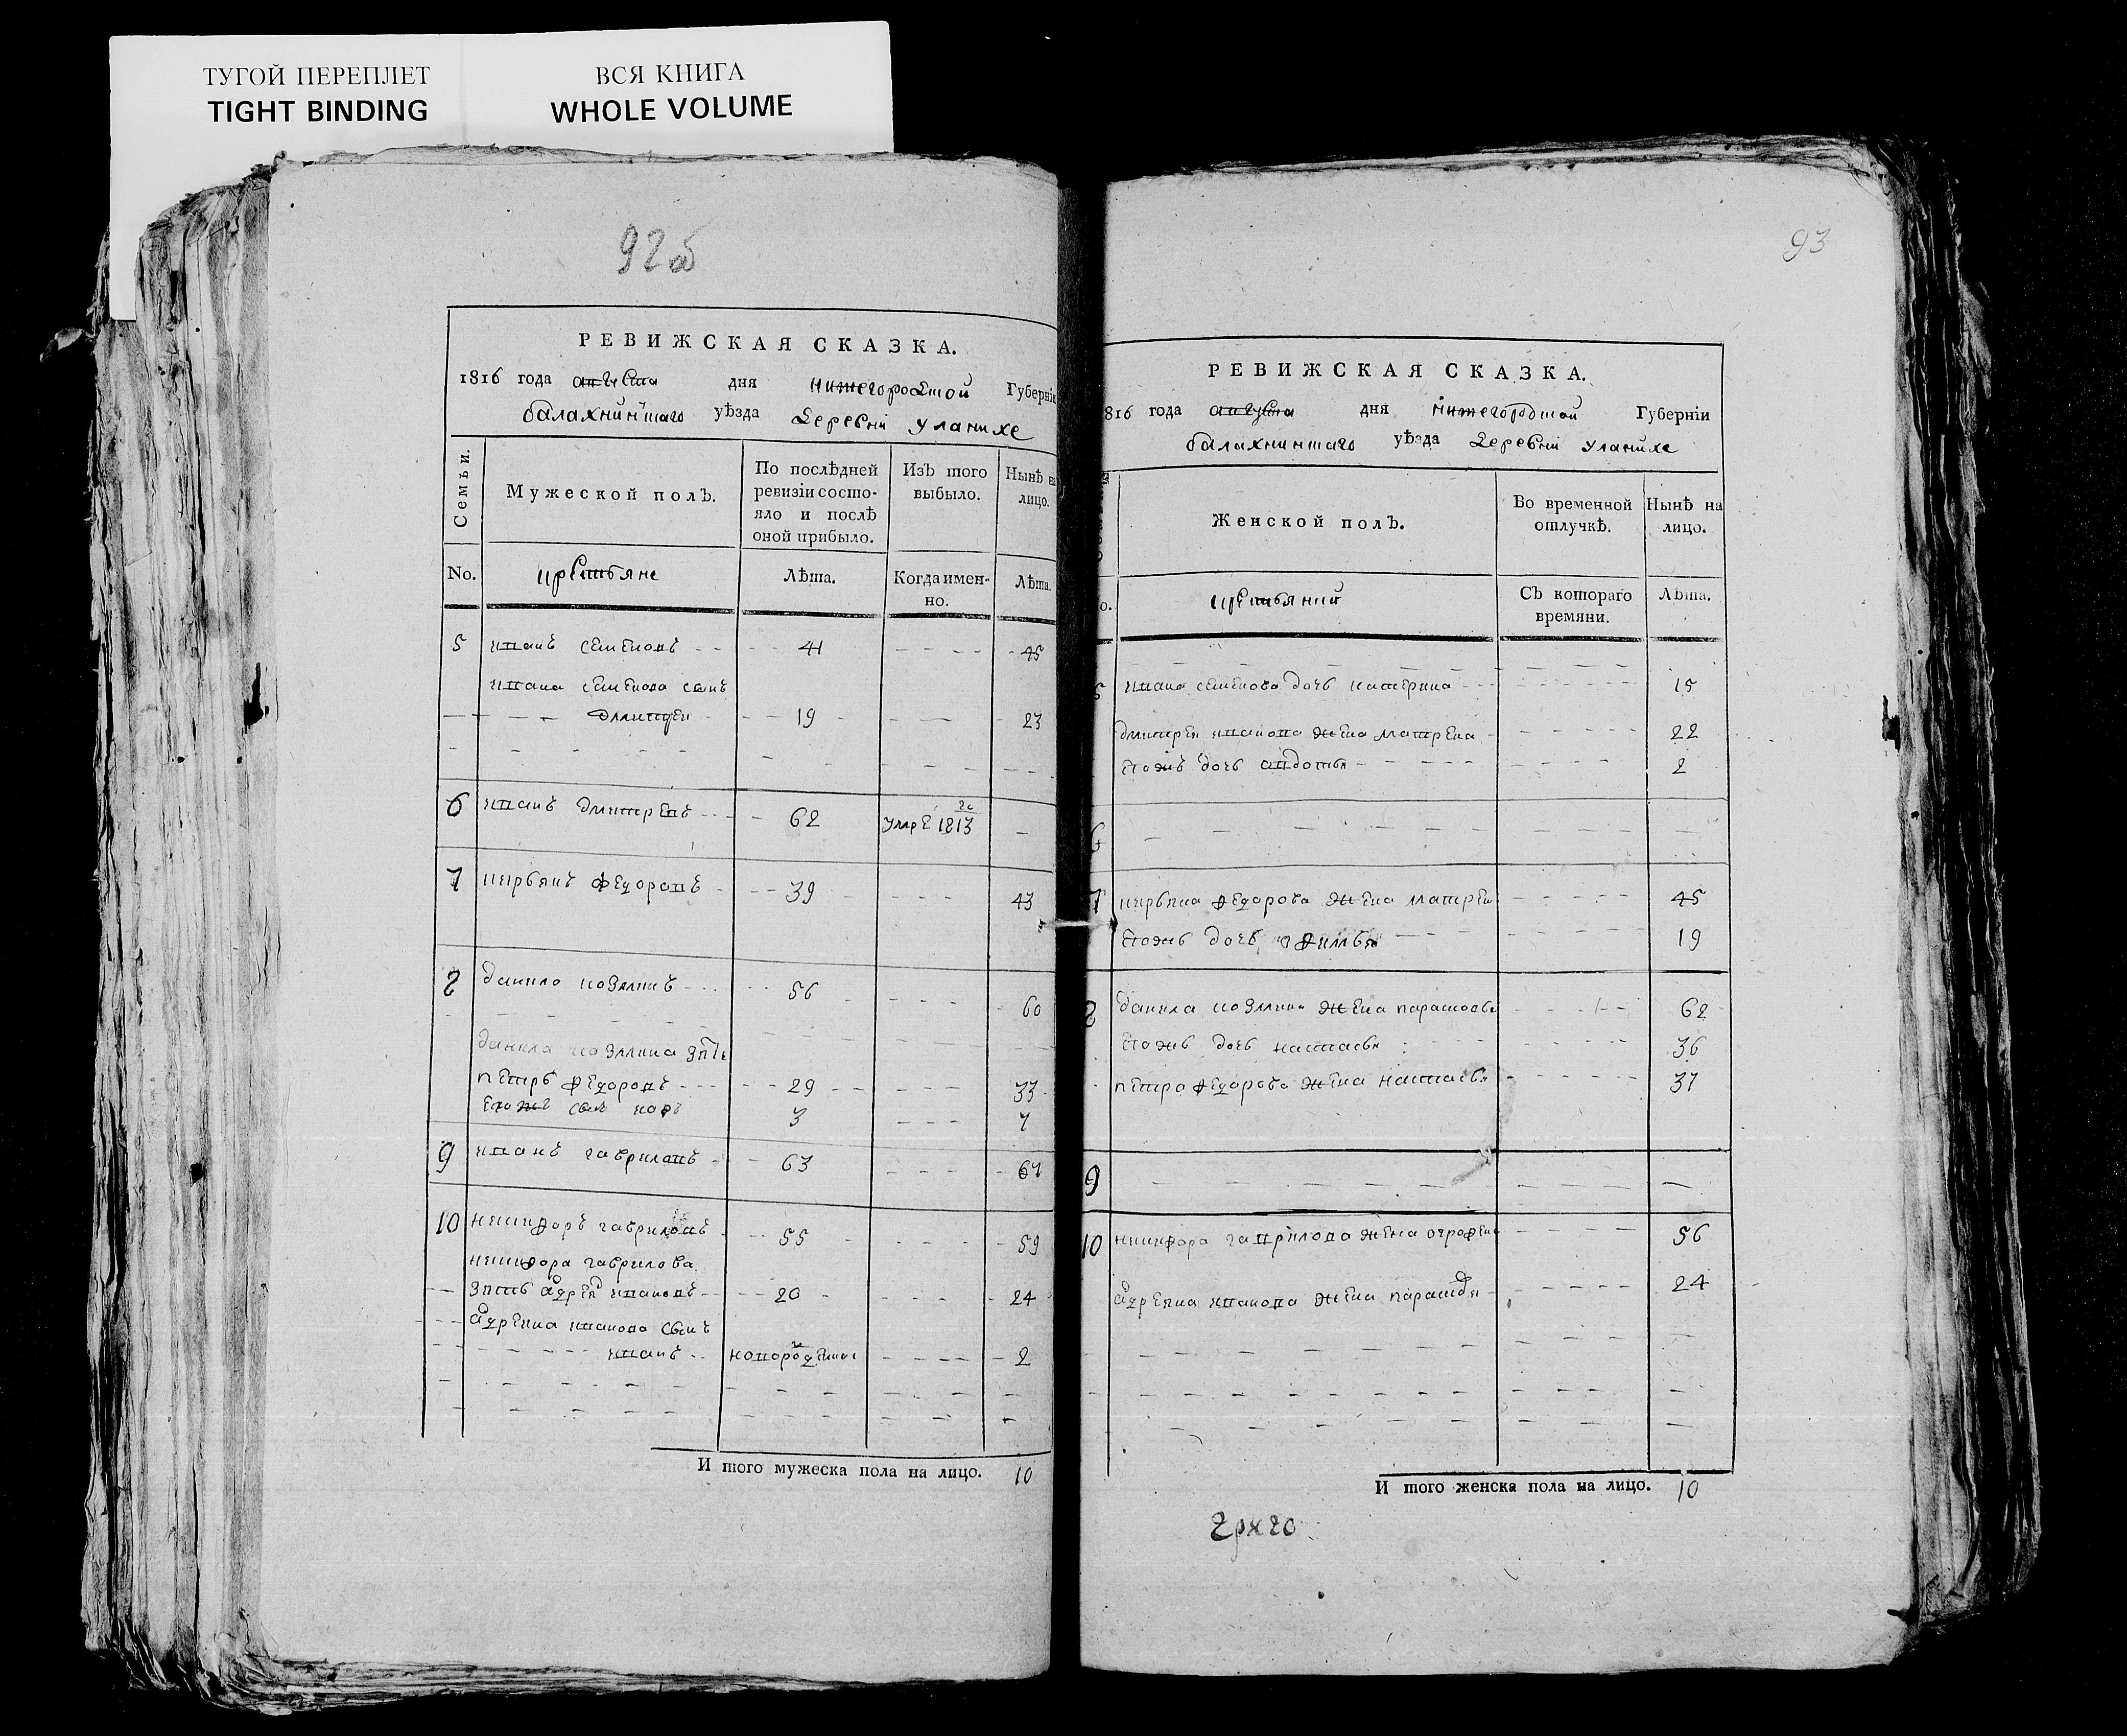 ТУГОЙ ПЕРЕПЛЕТ
TIGHT BINDING
ВСЯ КНИГА
WHOLE VOLUME
92об
РЕВИЖСКАЯ СКАЗКА.
1816 года августа дня нижегородской Губерніи
балахнинскаго уѣзда деревни уланихе
Семьи.
Мужеской полъ.
По послѣдней ревизіи состояло и послѣ оной прибыло.
Изъ того выбыло.
Нынѣ на лицо.
No.
крестьяне
Лѣта.
Когда именно.
Лѣта.
5 иванъ семеновъ 41 45
ивана семенова сынъ
дмитреи 19 23
6 иванъ дмитревъ 62 умре 1813
7 федоровъ 39 43
8 данило козминъ 56 60
данила козмина зять
петръ федоровъ 29 33
евожъ сынъ 3 7
9 иванъ гавриловъ 63 67
10 никифоръ гавриловъ 55 59
никифора гаврилова
зять ивановъ 20 24
иванова сынъ
иванъ новорожденной 2
И того мужеска пола на лицо. 10
93
РЕВИЖСКАЯ СКАЗКА.
816 года августа дня нижегородской Губерніи
балахнинскаго уѣзда деревни уланихе
Женской полъ.
Во временной отлучкѣ.
Нынѣ на лицо.
Съ котораго времяни.
Лѣта.
ивана семенова дочь катерина 15
дмитрея иванова жена матрена 22
евожъ дочь авдотья 2
6
7 федорова жена матрена 45
евожъ дочь 19
8 данила козмина жена парасковья 62
евожъ дочь настасья 36
петра федорова жена настасья 37
9
10 никифора гаврилова жена огрофена 56
иванова жена 24
И того женска пола на лицо. 10